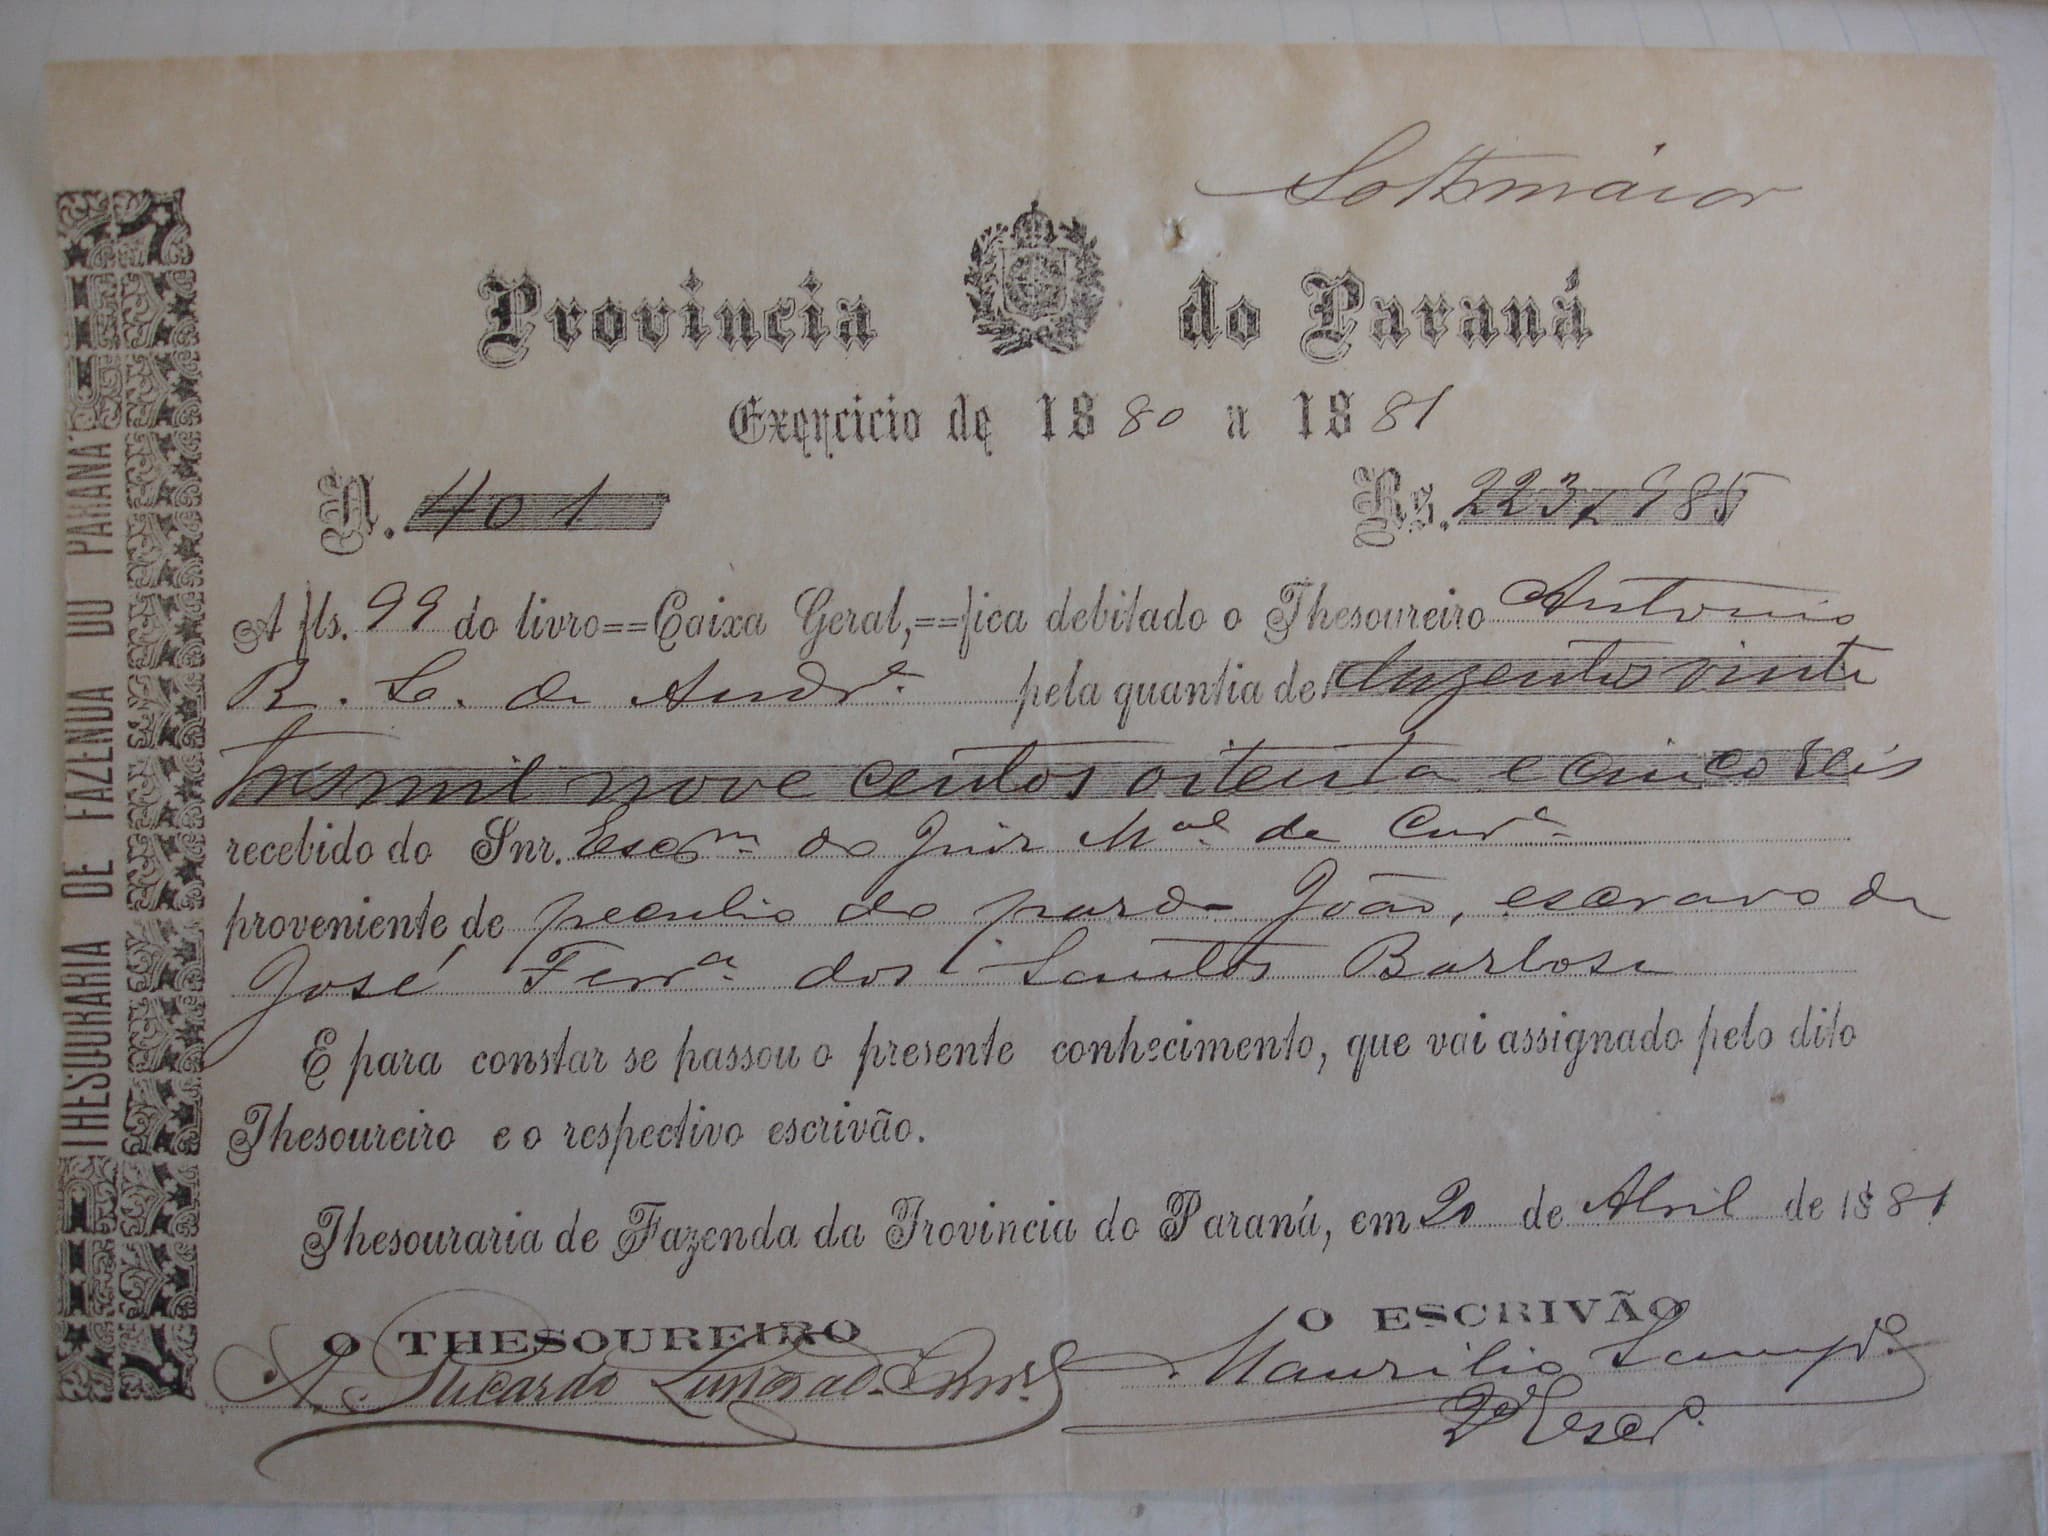 Sottomáior
Provincia do Paraná
Exercicio de 1880 a 1881
N. 401 Rs. 223$985
A fls. 99 do livro==Caixa Geral,==fica debitado o Thesoureiro Antonio
R. L. de Andre. pela quantia de duzentos vinte
tres mil nove centos oitenta e cinco reis
recebido do Snr. Escrm. do Juiz Mal. de Cura.
proveniente de peculio do pardo João, escravo de
José Ferra. dos Santos Barbosa
E para constar se passou o presente conhecimento, que vai assignado pelo dito
Thesoureiro e o respectivo escrivão.
Thesouraria de Fazenda da Provincia do Paraná, em 20 de Abril de 1881
O THESOUREIRO O ESCRIVÃO
A. Ricardo Maurilio Sampo.
2º Escro.
THESOURARIA DE FAZENDA DO PARANÁ